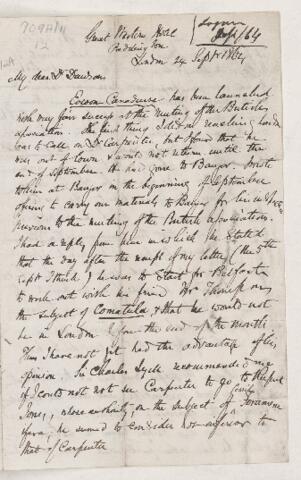 709A/11
12
Logan
Sept/64
Great Western Hotel
Paddington
London 24 Sept 1864
My dear Dr Dawson
Eozoon Canadense has been launched
with very fair success at the meeting of the British
Association. The first thing I did on reaching London
was to call on Dr Carpenter, but I found that he
was out of town & would not return until the
end of September. He had gone to Bangor. I wrote
to him at Bangor in the beginning of September
offering to carry our materials to Bangor for his use
previous to the meeting of the British Association.
I had a reply from him in which he stated
that the day after the receipt of my letter (the 5th
Sept I think) he was to start for Belfast
to work out with his friend Dr Thompson
the subject of Comatula, & that he would not
be in London before the end of the month
Thus I have not yet had the advantage of his
opinion. Sir Charles Lyell recommended me
if I could not see Carpenter to go to Rupert
Jones, whose authority on the subject of foramini
fera, he seemed to consider not inferior to
that of Carpenter